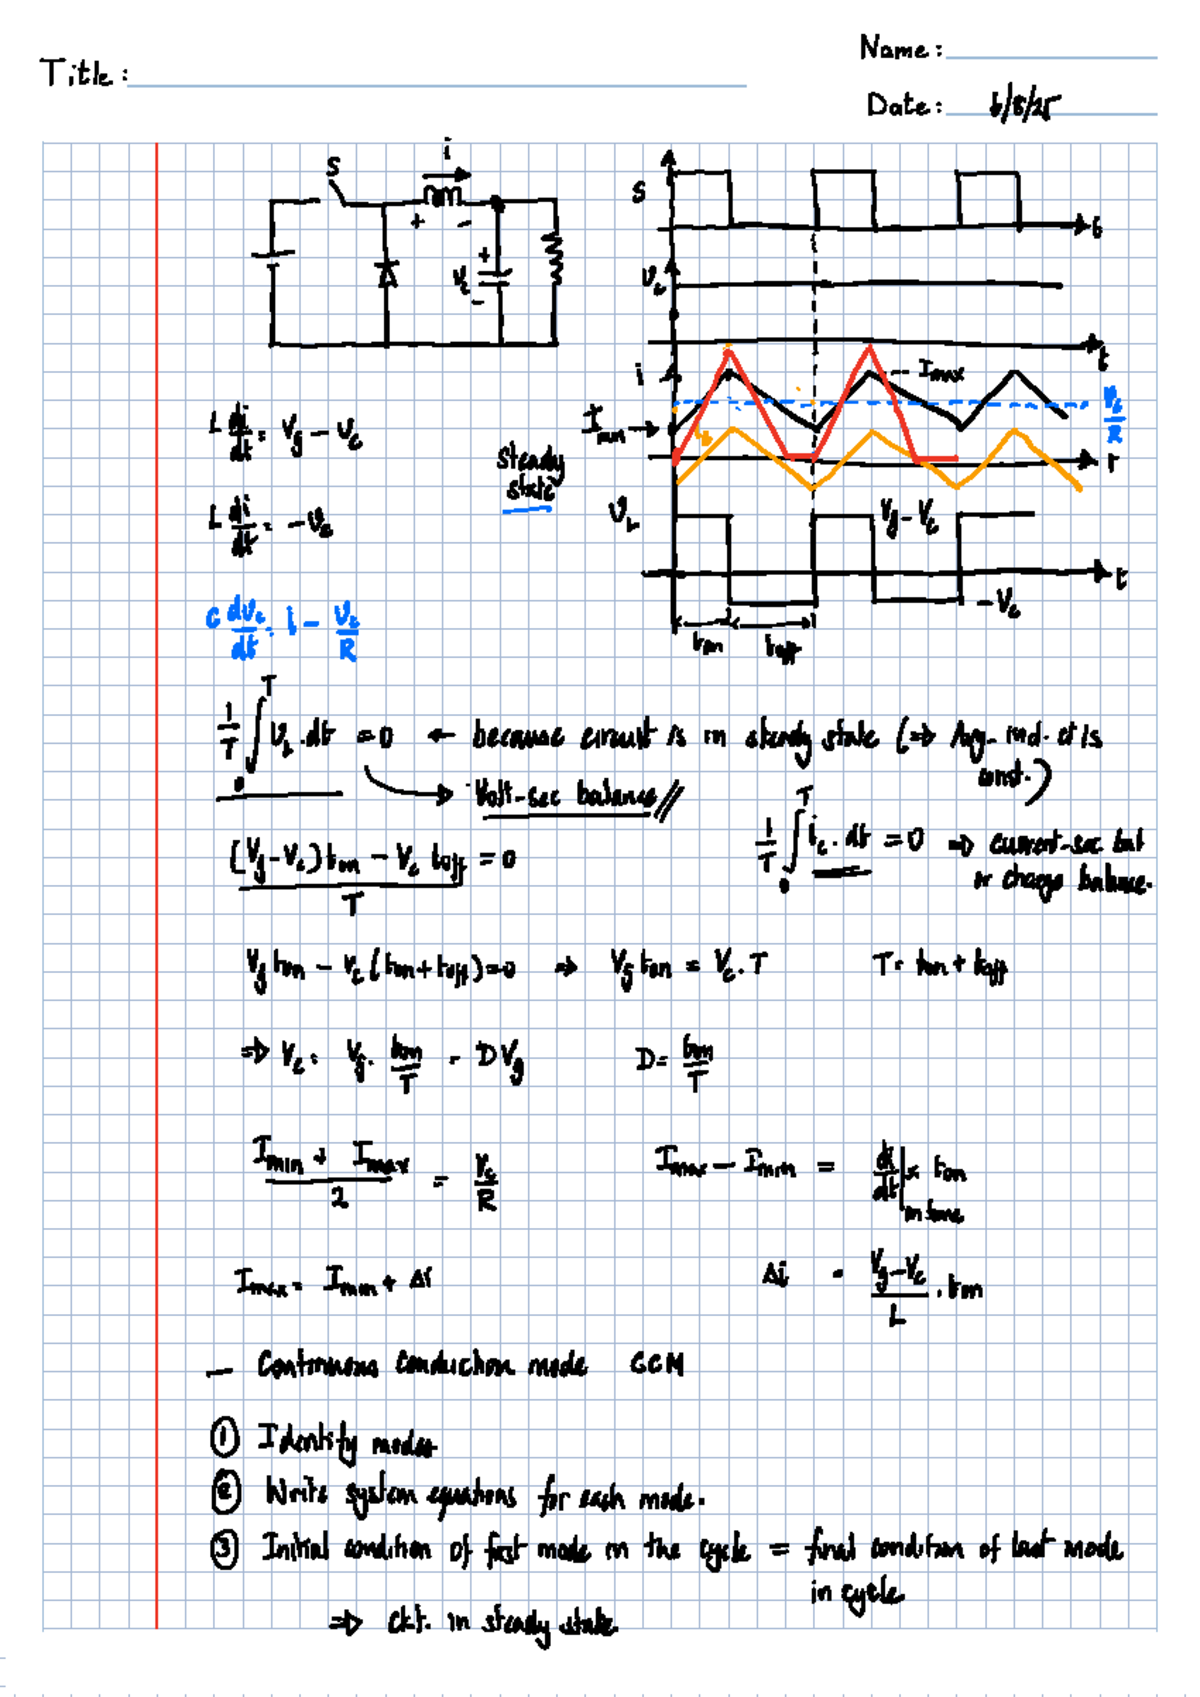 Name:
Title:
Date: 6/8/25
S
i
+ -
+
Vc
-
S
t
Vc
t
i
Imax
Imin →
Vc/R
t
steady
state
VL
Vg - Vc
t
- Vc
ton toff
L di/dt = Vg - Vc
L di/dt = - Vc
C dVc/dt = i - Vc/R
1/T ∫₀ᵀ VL . dt = 0 ← because circuit is in steady state (⇒ Avg. ind. ct is
const.)
→ Volt-sec balance //
1/T ∫₀ᵀ ic . dt = 0 ⇒ current-sec bal
or charge balance.
(Vg - Vc) ton - Vc toff / T = 0
Vg ton - Vc (ton + toff) = 0 ⇒ Vg ton = Vc . T T = ton + toff
⇒ Vc = Vg . ton/T = D Vg D = ton/T
Imin + Imax / 2 = Vc/R Imax - Imin = di/dt | × ton
Imax = Imin + Δi Δi = Vg - Vc / L . ton
— Continuous conduction mode CCM
① Identify modes
② Write system equations for each mode.
③ Initial condition of first mode in the cycle = final condition of last mode
in cycle
⇒ ckt. in steady state.